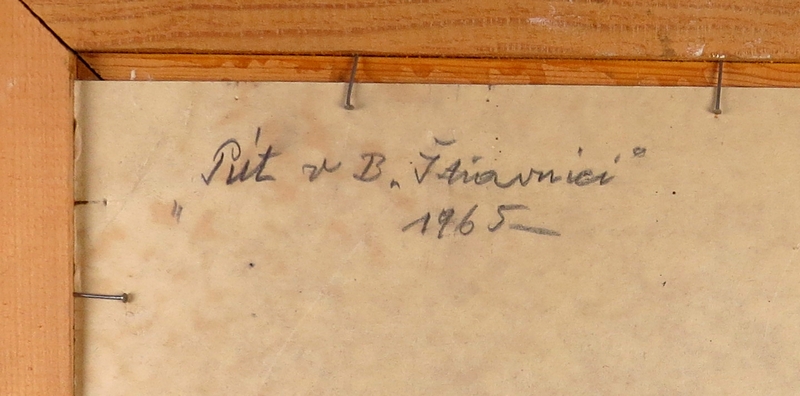 „Púť v B. Štiavnici“
1965